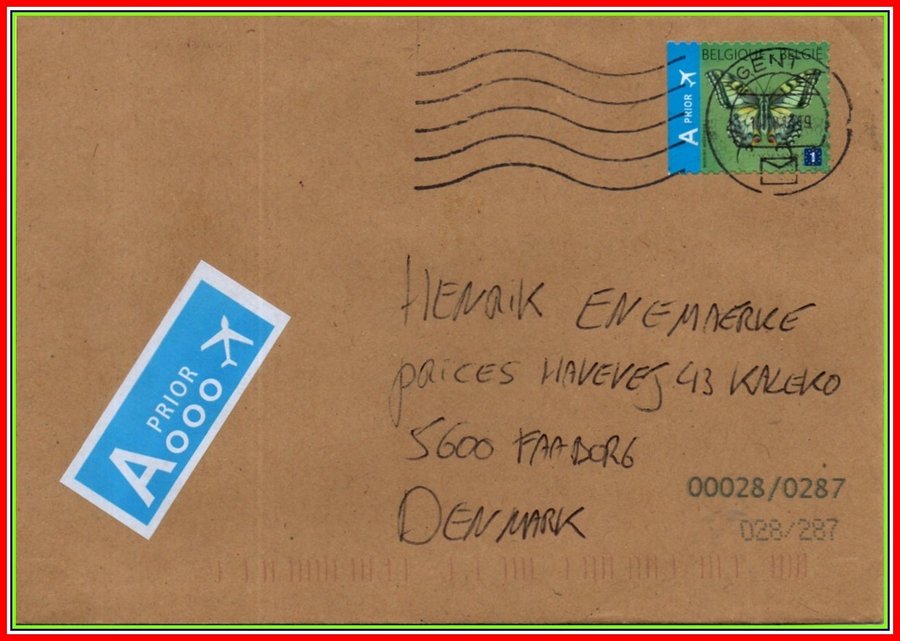 BELGIQUE BELGIË
GENT
A PRIOR
1
HENRIK ENEMAERKE
PRICES HAVEVEJ 43 KALEKO
5600 FAABORG
DENMARK
A PRIOR
00028/0287
028/287